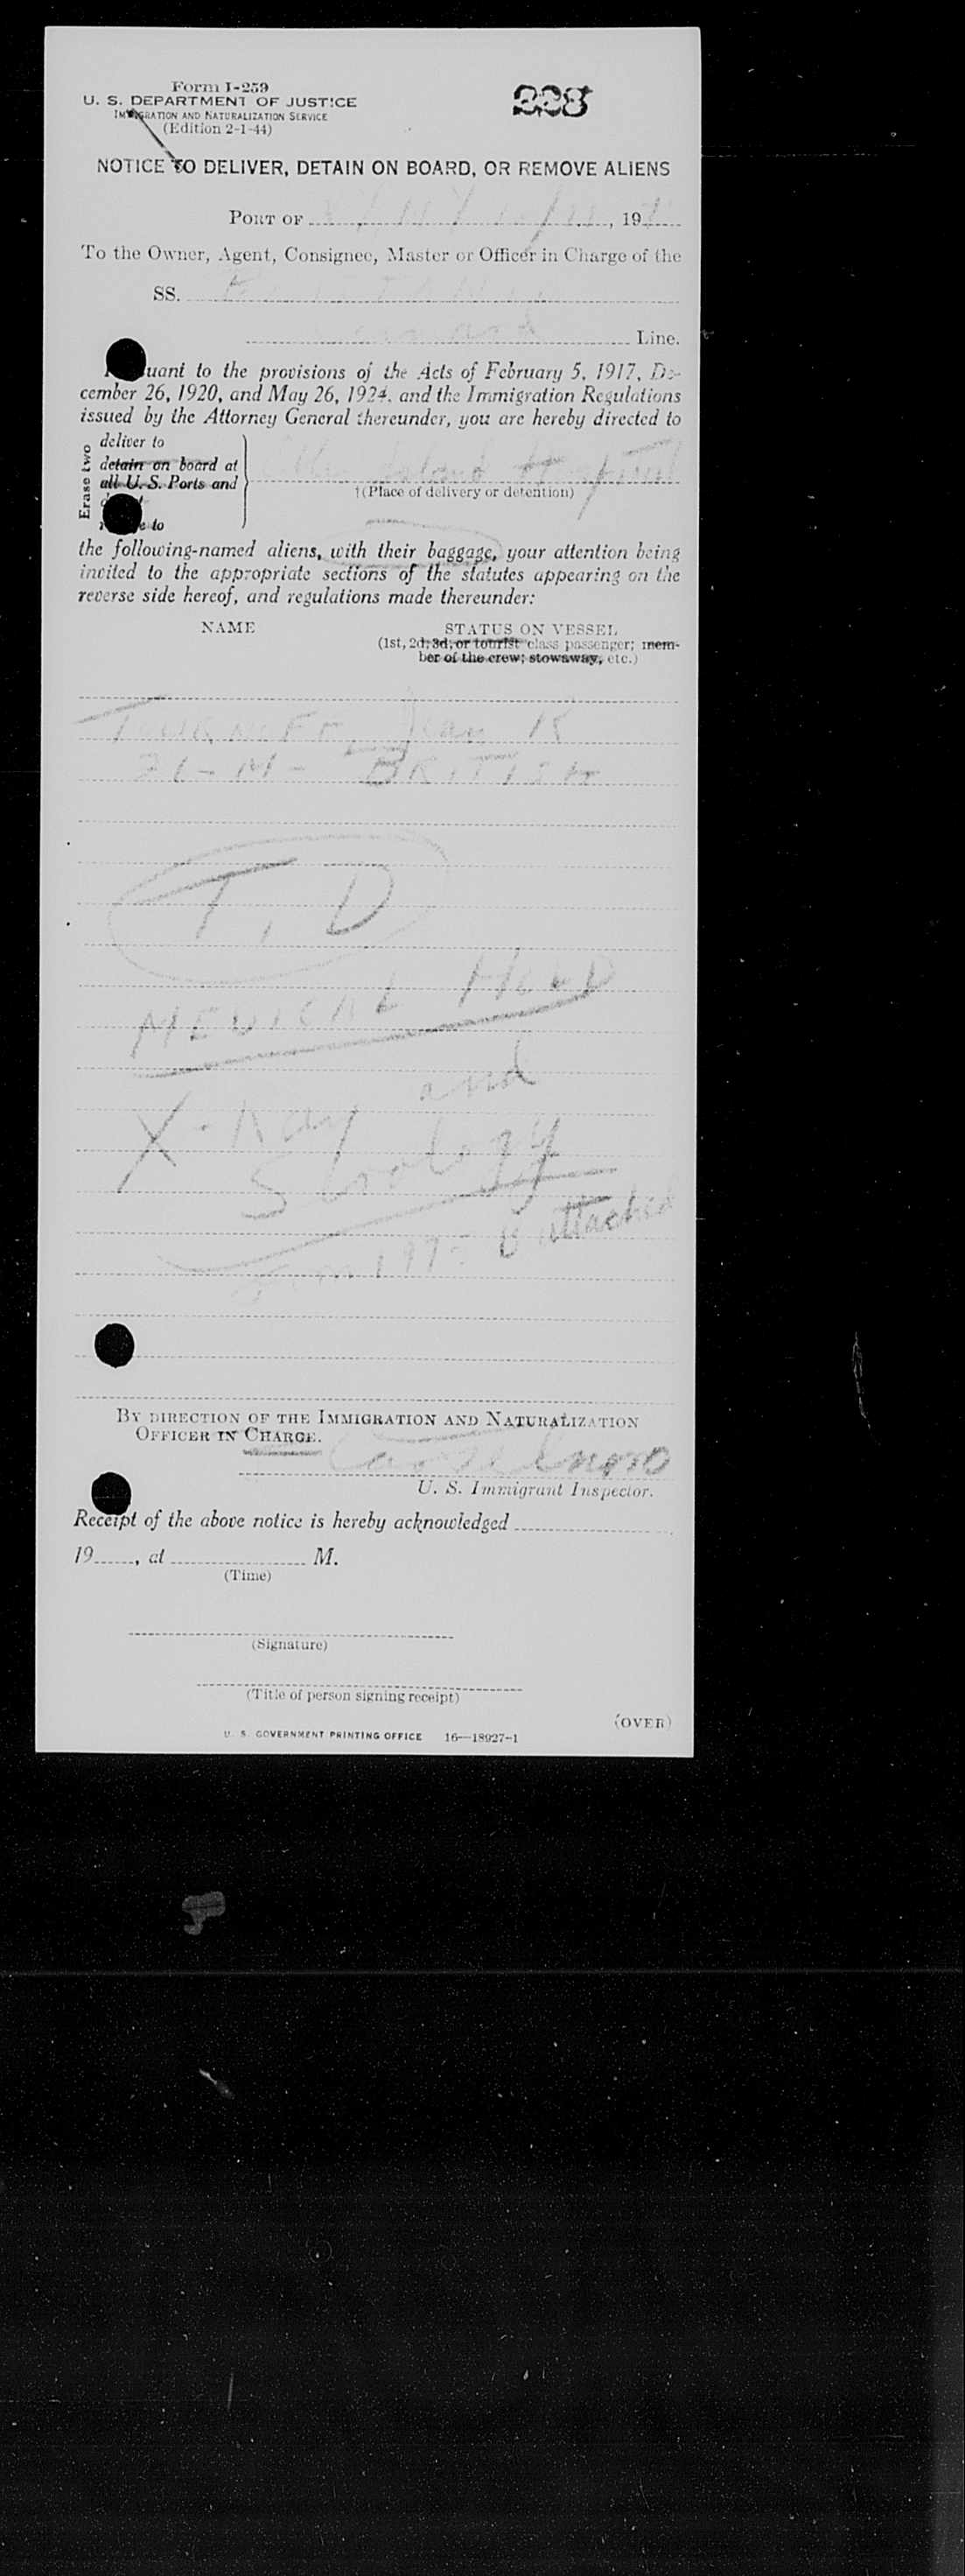 Form I-259
U. S. DEPARTMENT OF JUSTICE
IMMIGRATION AND NATURALIZATION SERVICE
(Edition 2-1-44)
228
NOTICE TO DELIVER, DETAIN ON BOARD, OR REMOVE ALIENS
PORT OF , 19
To the Owner, Agent, Consignee, Master or Officer in Charge of the
SS.
Line.
uant to the provisions of the Acts of February 5, 1917, De-
cember 26, 1920, and May 26, 1924, and the Immigration Regulations
issued by the Attorney General thereunder, you are hereby directed to
Erase two
deliver to
detain on board at
all U. S. Ports and
e to
Island Hospital
†(Place of delivery or detention)
the following-named aliens, with their baggage, your attention being
invited to the appropriate sections of the statutes appearing on the
reverse side hereof, and regulations made thereunder:
NAME STATUS ON VESSEL
(1st, 2d, 3d, or tourist class passenger; mem-
ber of the crew; stowaway, etc.)
Jean K
M - BRITISH
T, D
MEDICAL HOLD
X-Ray and
attached
BY DIRECTION OF THE IMMIGRATION AND NATURALIZATION
OFFICER IN CHARGE.
U. S. Immigrant Inspector.
Receipt of the above notice is hereby acknowledged
19 , at M.
(Time)
(Signature)
(Title of person signing receipt)
(OVER)
U. S. GOVERNMENT PRINTING OFFICE 16—18927-1